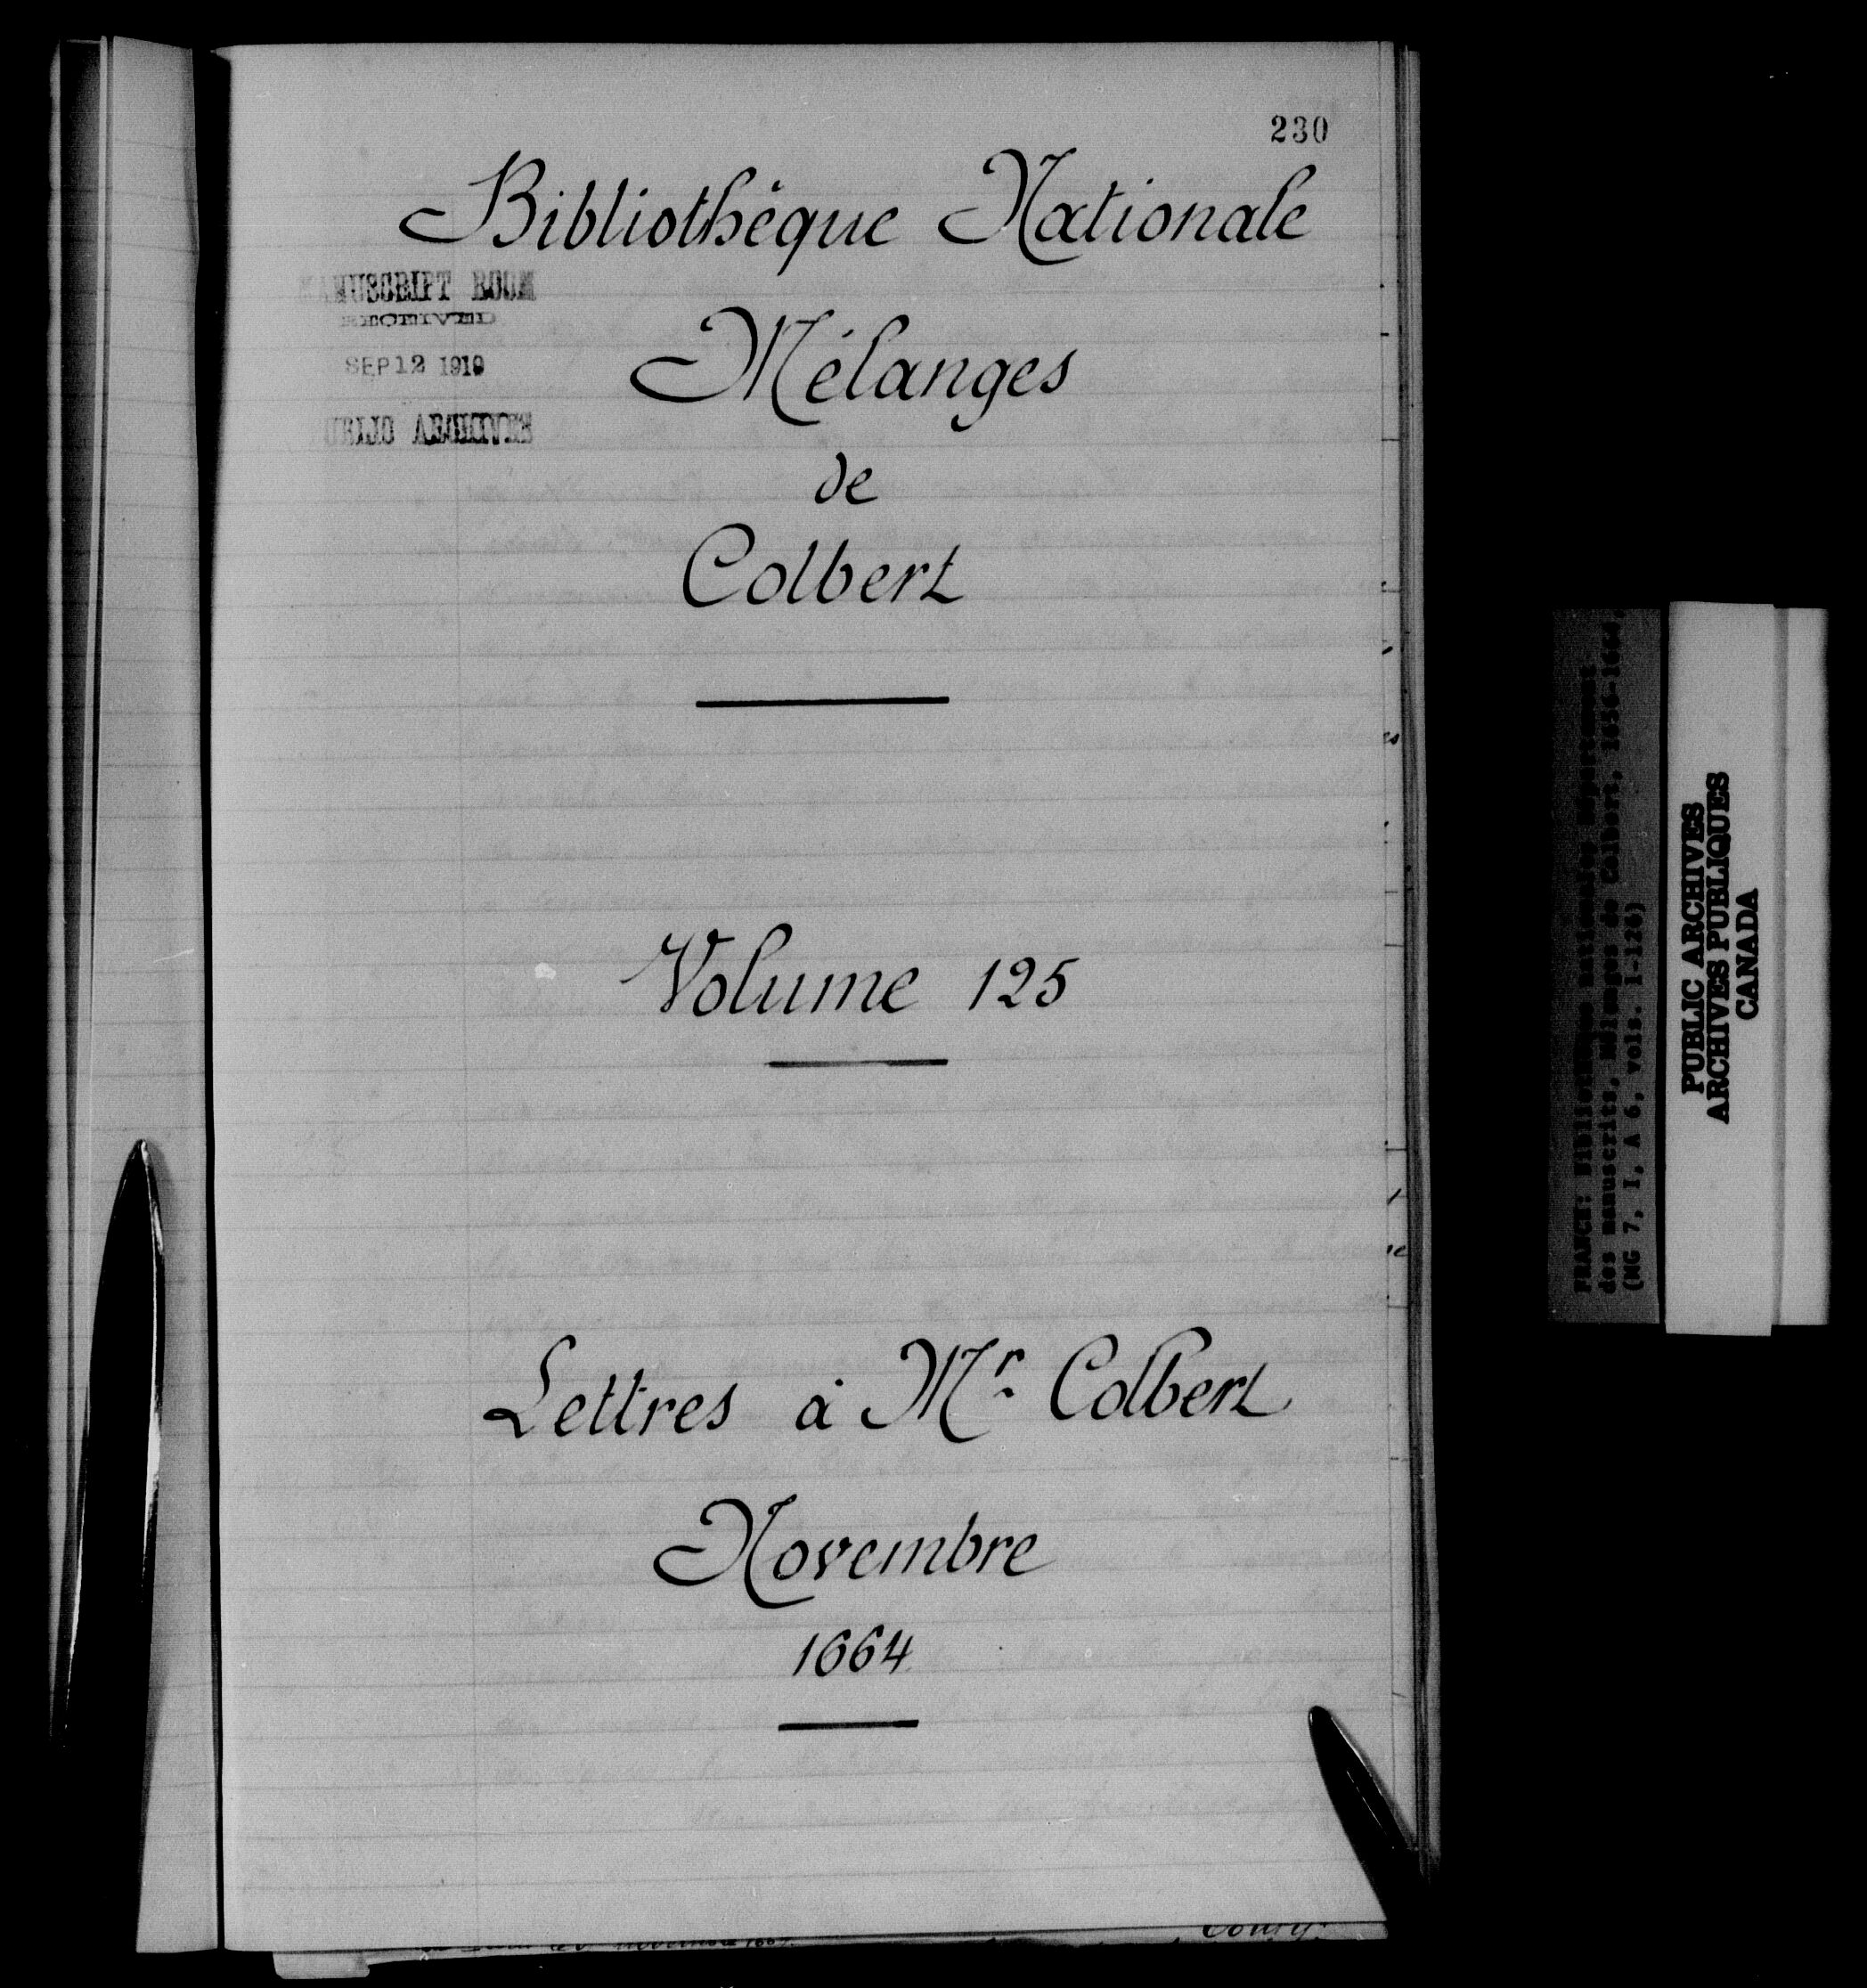 230
Bibliothèque Nationale
MANUSCRIPT ROOM
RECEIVED
SEP 12 1919
PUBLIC ARCHIVES
Mélanges
de
Colbert
Volume 125
Lettres à Mr. Colbert
Novembre
1664
FRANCE: Bibliothèque nationale, Département
des manuscrits, Mélanges de Colbert, 1656-1664
(MG 7, I, A 6, vols. 1-126)
PUBLIC ARCHIVES
ARCHIVES PUBLIQUES
CANADA